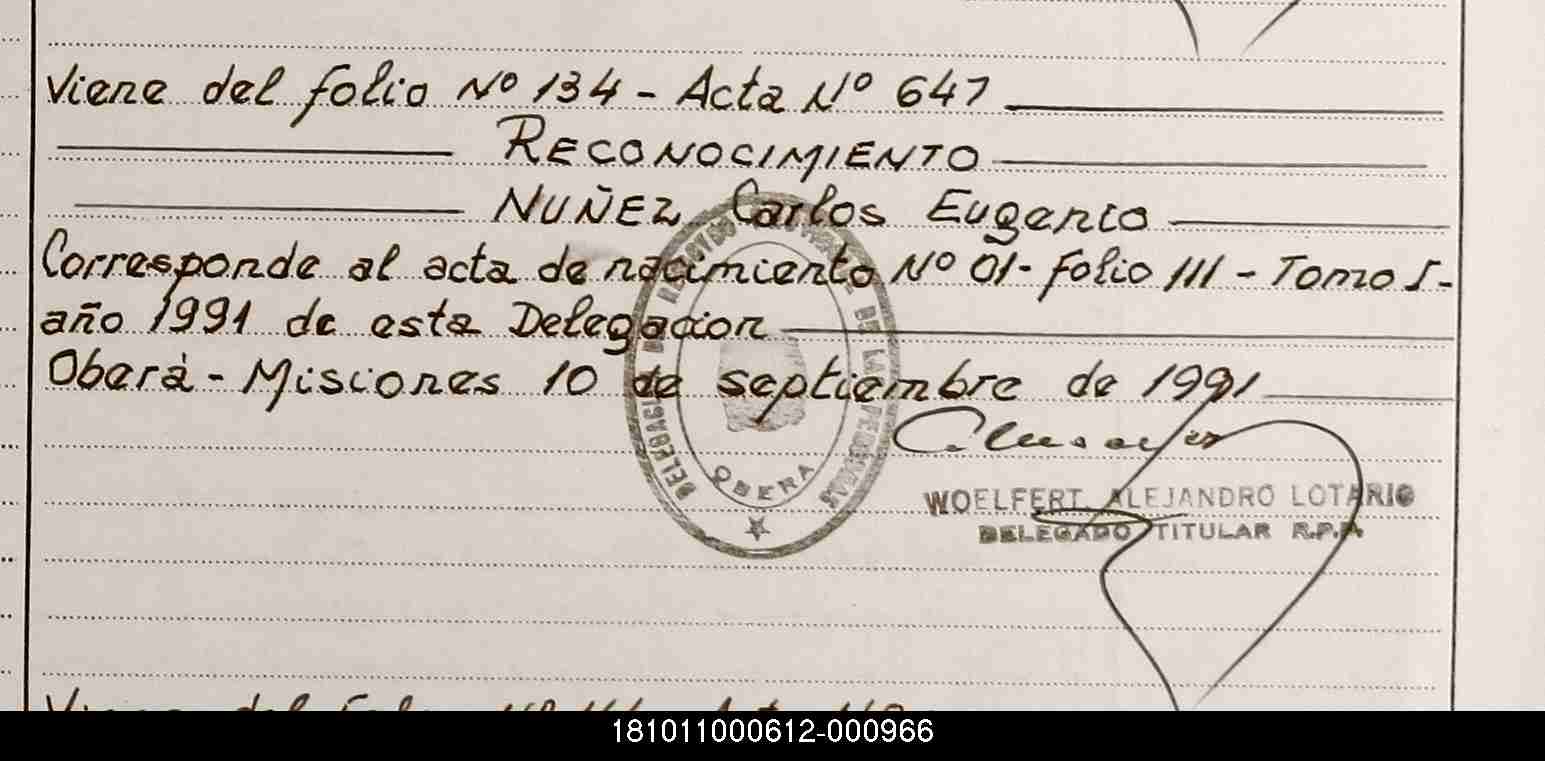 Viene del folio Nº 134 - Acta Nº 647
RECONOCIMIENTO
NUÑEZ Carlos Eugenio
Corresponde al acta de nacimiento Nº 01 - folio III - Tomo I -
año 1991 de esta Delegacion
Oberà - Misiones 10 de septiembre de 1991
OBERA
WOELFERT, ALEJANDRO LOTARIO
DELEGADO TITULAR R.P.P.
181011000612-000966